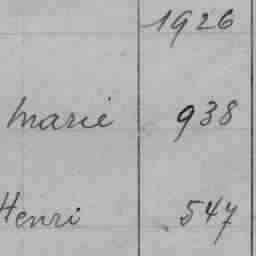 1926
marie 938
Henri 547